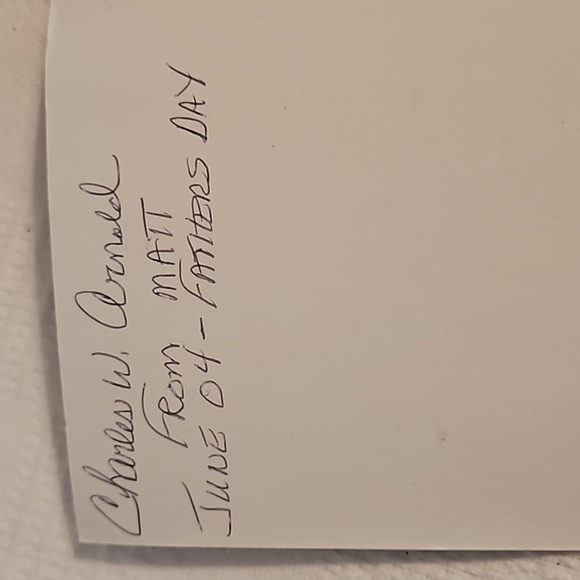 Charles W. Arnold
FROM MATT
JUNE 04 - FATHERS DAY